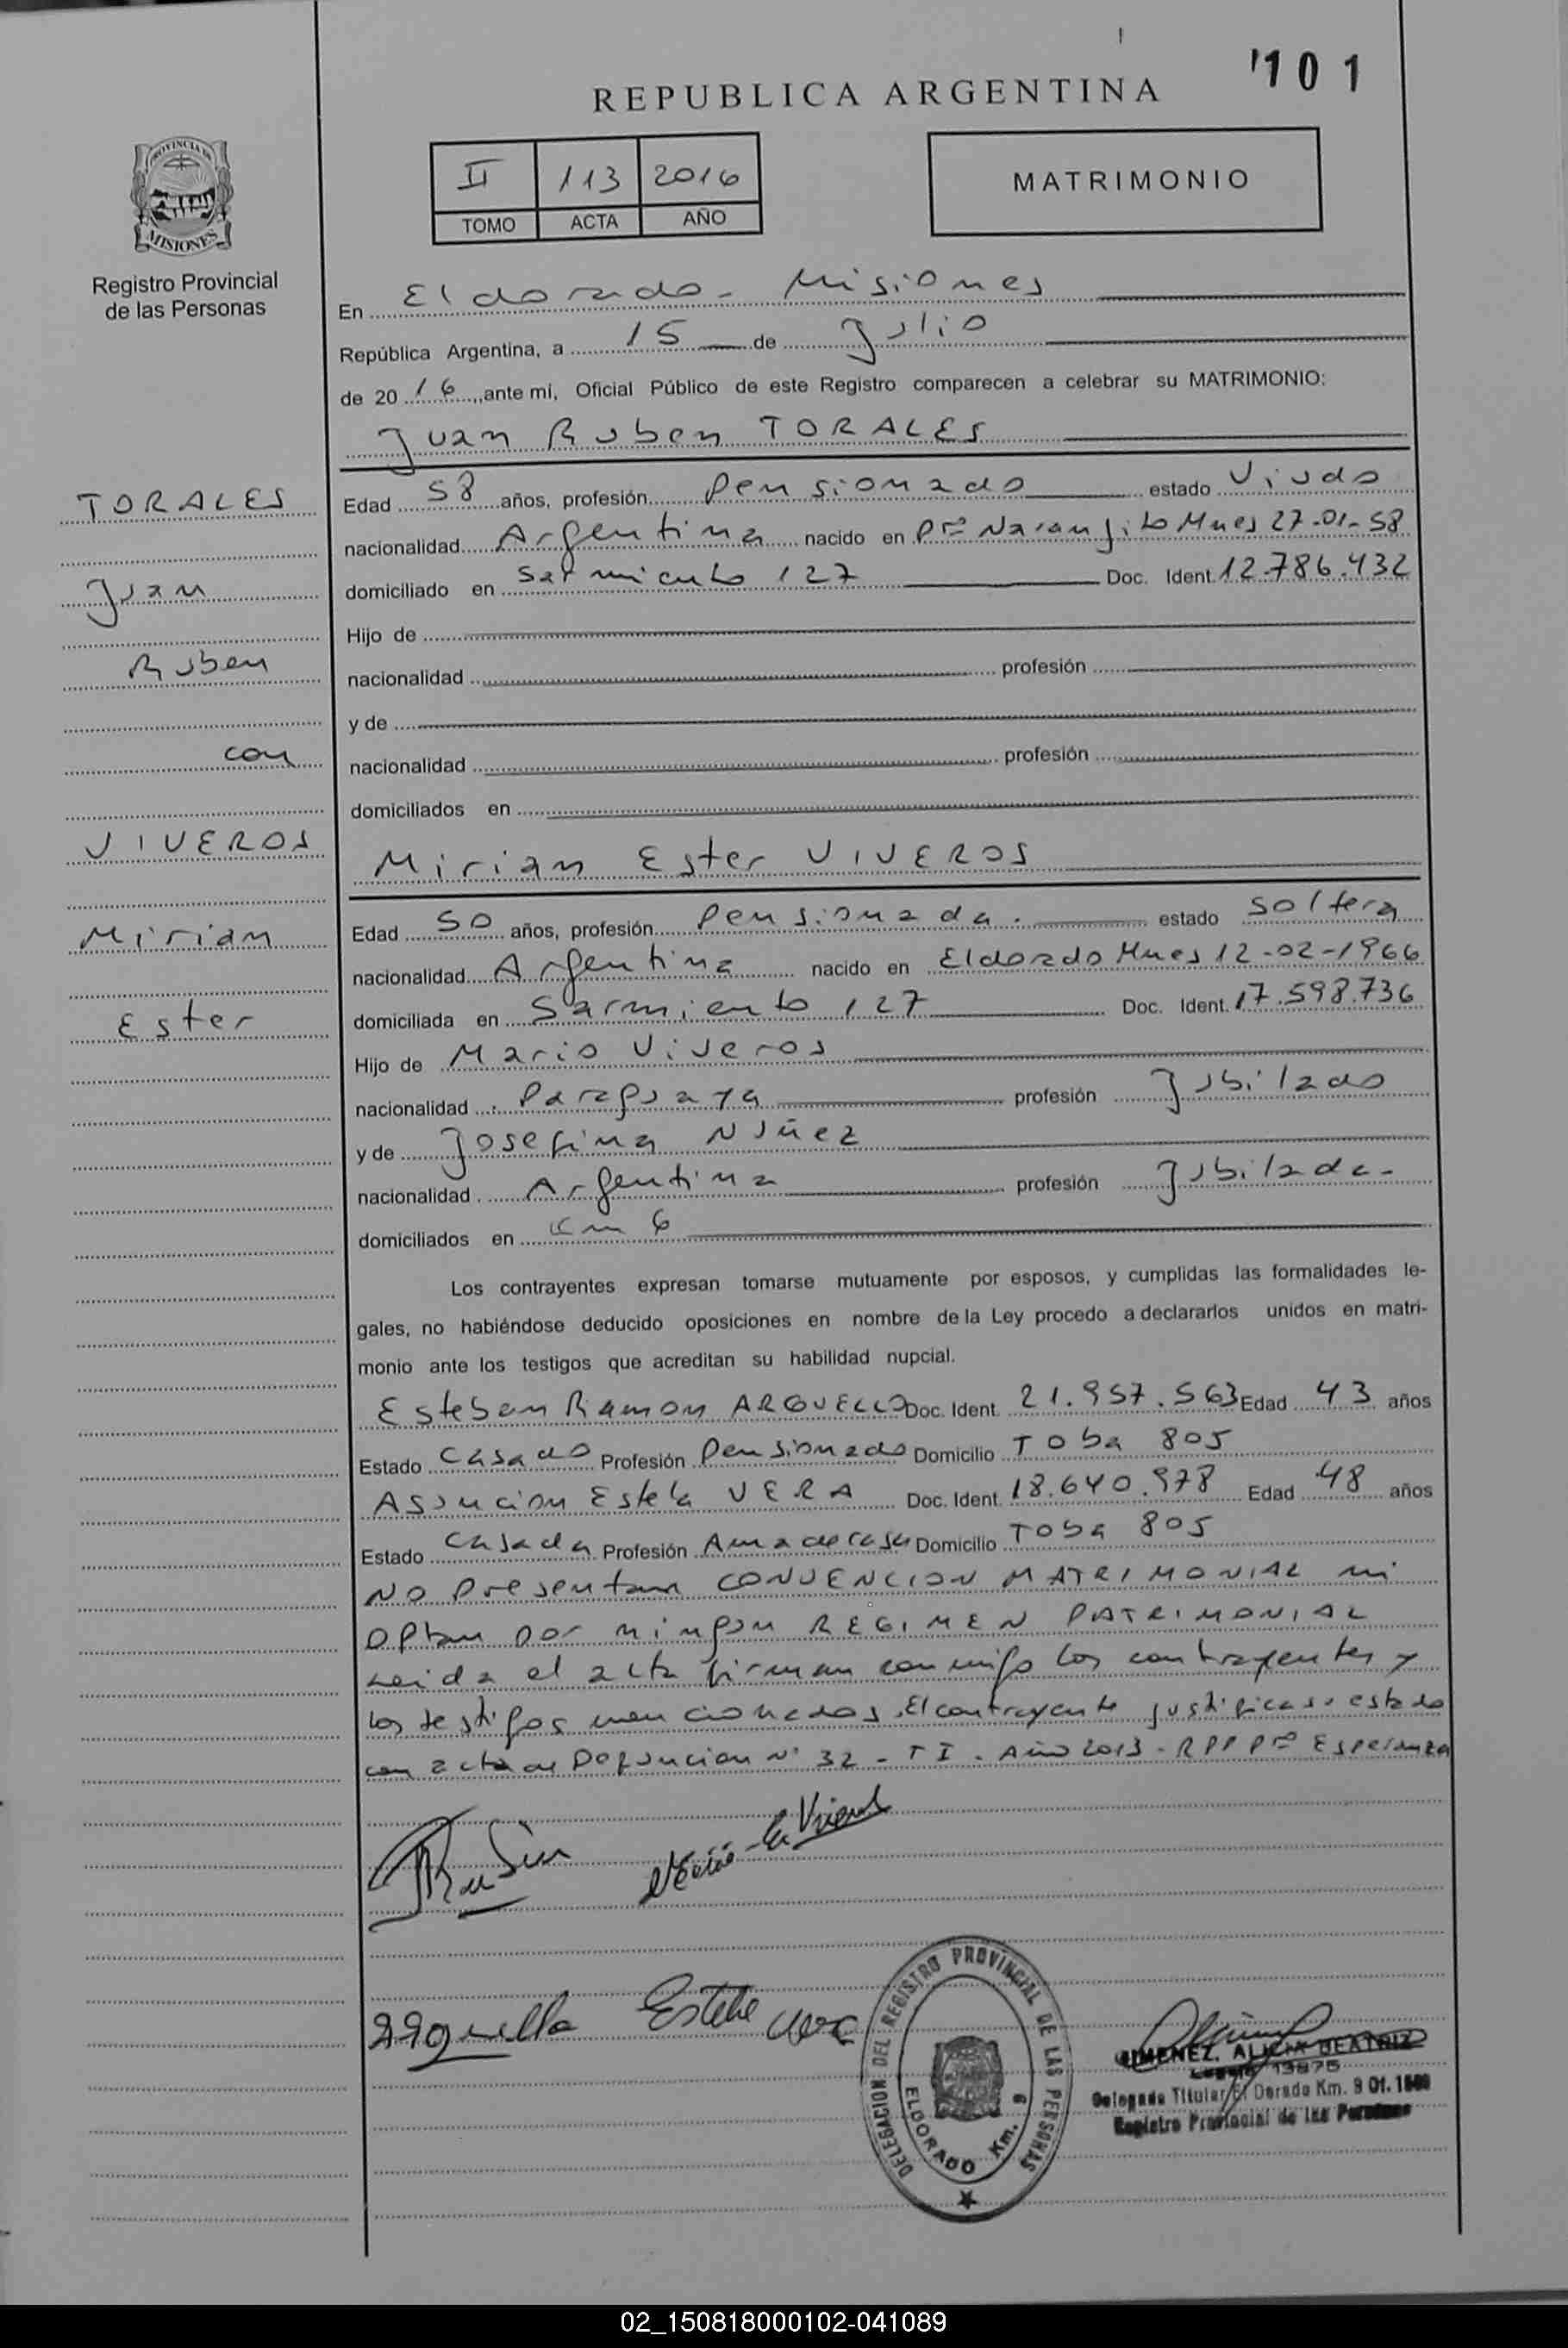 '101
REPUBLICA ARGENTINA
PROVINCIA DE
MISIONES
II 113 2016
TOMO ACTA AÑO
MATRIMONIO
Registro Provincial
de las Personas
En Eldorado - Misiones
República Argentina, a 15 de Julio
de 20 16, ante mi, Oficial Público de este Registro comparecen a celebrar su MATRIMONIO:
Juan Ruben TORALES
TORALES
Juan
Ruben
con
VIVEROS
Mirian
Ester
Edad 58 años, profesión Pensionado estado Viudo
nacionalidad Argentina nacido en Pto Naranjito Mnes 27-01-58
domiciliado en Sarmiento 127 Doc. Ident. 12.786.432
Hijo de
nacionalidad profesión
y de
nacionalidad profesión
domiciliados en
Mirian Ester VIVEROS
Edad 50 años, profesión Pensionada. estado Soltera
nacionalidad Argentina nacido en Eldorado Mnes 12-02-1966
domiciliada en Sarmiento 127 Doc. Ident. 17.598.736
Hijo de Mario Viveros
nacionalidad Paraguaya profesión Jubilado
y de Josefina Nuñez
nacionalidad Argentina profesión Jubilada-
domiciliados en Km 6
Los contrayentes expresan tomarse mutuamente por esposos, y cumplidas las formalidades le-
gales, no habiéndose deducido oposiciones en nombre de la Ley procedo a declararlos unidos en matri-
monio ante los testigos que acreditan su habilidad nupcial.
Esteban Ramon ARGUELLO Doc. Ident. 21.957.563 Edad 43 años
Estado Casado Profesión Pensionado Domicilio Toba 805
Asuncion Estela VERA Doc. Ident. 18.640.978 Edad 48 años
Estado Casada Profesión Ama de casa Domicilio Toba 805
No presentan CONVENCION MATRIMONIAL ni
optan por ningun REGIMEN PATRIMONIAL
Leida el acta firman conmigo los contrayentes y
los testigos mencionados. El contrayente justifica su estado
con acta de Defuncion N° 32 - T I - Año 2013 - RPP Pto Esperanza
Arguello Estela Vera
DELEGACION DEL REGISTRO PROVINCIAL DE LAS PERSONAS
ELDORADO Km. 9
JIMENEZ, ALICIA BEATRIZ
Delegada Titular El Dorado Km. 9 Of.
Registro Provincial de las Personas
02_150818000102-041089